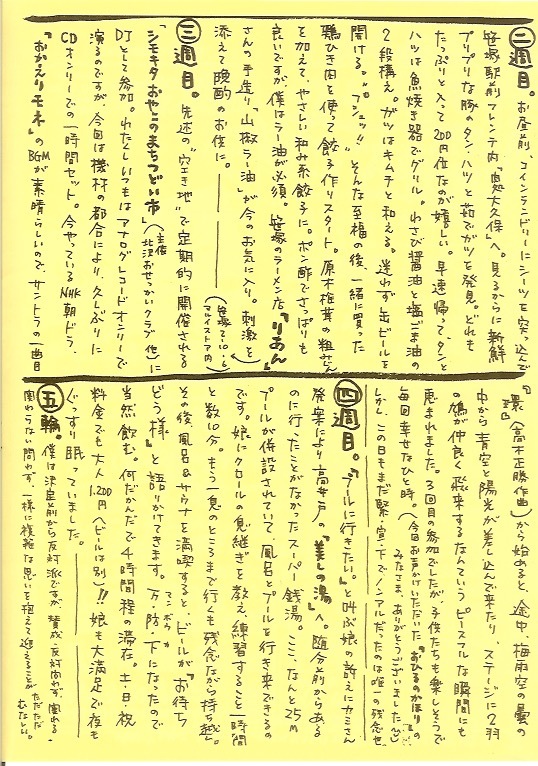 二週目。お昼前、コインランドリーにシーツを突っ込んで
笹塚駅前フレンテ内「肉処大久保」へ。見るからに新鮮
プリプリな豚のタン・ハツと茹でガツを発見。どれも
たっぷりと入って200円位なのが嬉しい。早速帰ってタンと
ハツは魚焼き器でグリル。わさび醤油と塩ごま油の
2段構え。ガツはキムチと和える。迷わず缶ビールを
開ける。"プシュッ!!" そんな至福の後、一緒に買った
鶏ひき肉を使って餃子作りスタート。原木椎茸の粗みじん
を加えて、やさしい和み系餃子に。ポン酢でさっぱりも
良いですが、僕はラー油が必須。笹塚のラーメン店「りあん」
さんの手造り「山椒ラー油」が今のお気に入り。刺激を
添えて晩酌のお供に。
三週目。先述の"空き地"で定期的に開催される
「シモキタおやこのまちつどい市」(主催 北沢おせっかいクラブ 他)に
DJとして参加。わたくしいつもはアナログレコードオンリーで
演るのですが、今回は機材の都合により、久しぶりに
CDオンリーでの一時間セット。今やっているNHK朝ドラ、
「おかえりモネ」のBGMが素晴らしいので、サントラの一曲目
「環」(高木正勝作曲)から始めると、途中、梅雨空の曇の
中から青空と陽光が差し込んで来たり、ステージに2羽
の鳩が仲良く飛来するなんていうピースフルな瞬間にも
恵まれました。3回目の参加でしたが、子供たちも楽しそうで
毎回幸せなひと時。(今回お声がいただいた「おひるのかほり」の
みなさま、ありがとうございました〜)
しかし、この日もまだ緊・宣・下でノンアルだったのは唯一の残念也。
四週目。「プールに行きたい。」と叫ぶ娘の訴えにカミさん
発案により高井戸の「美しの湯」へ。随分前からある
のに行ったことがなかったスーパー銭湯。ここ、なんと25m
プールが併設されていて、風呂とプールを行き来できるの
です。娘にクロールの息継ぎを教え、練習すること一時間
と数10分。もう一息のところまで行くも残念ながら持ち越し。
その後、風呂&サウナを満喫すると、ビールが「お待ち
どう様」と語りかけてきます。万・防・下になったので
マンボウカ
当然飲む。何だかんだで4時間程の滞在。土・日・祝
料金でも大人1,200円へ(ビールは別)!! 娘も大満足で夜も
ぐっすり眠っていました。
五輪。僕は決定前から反対派ですが、賛成・反対問わず、関わる・
関わらない問わず、一様に複雑な思いを抱えて進むことが
ただただ
むなしい。